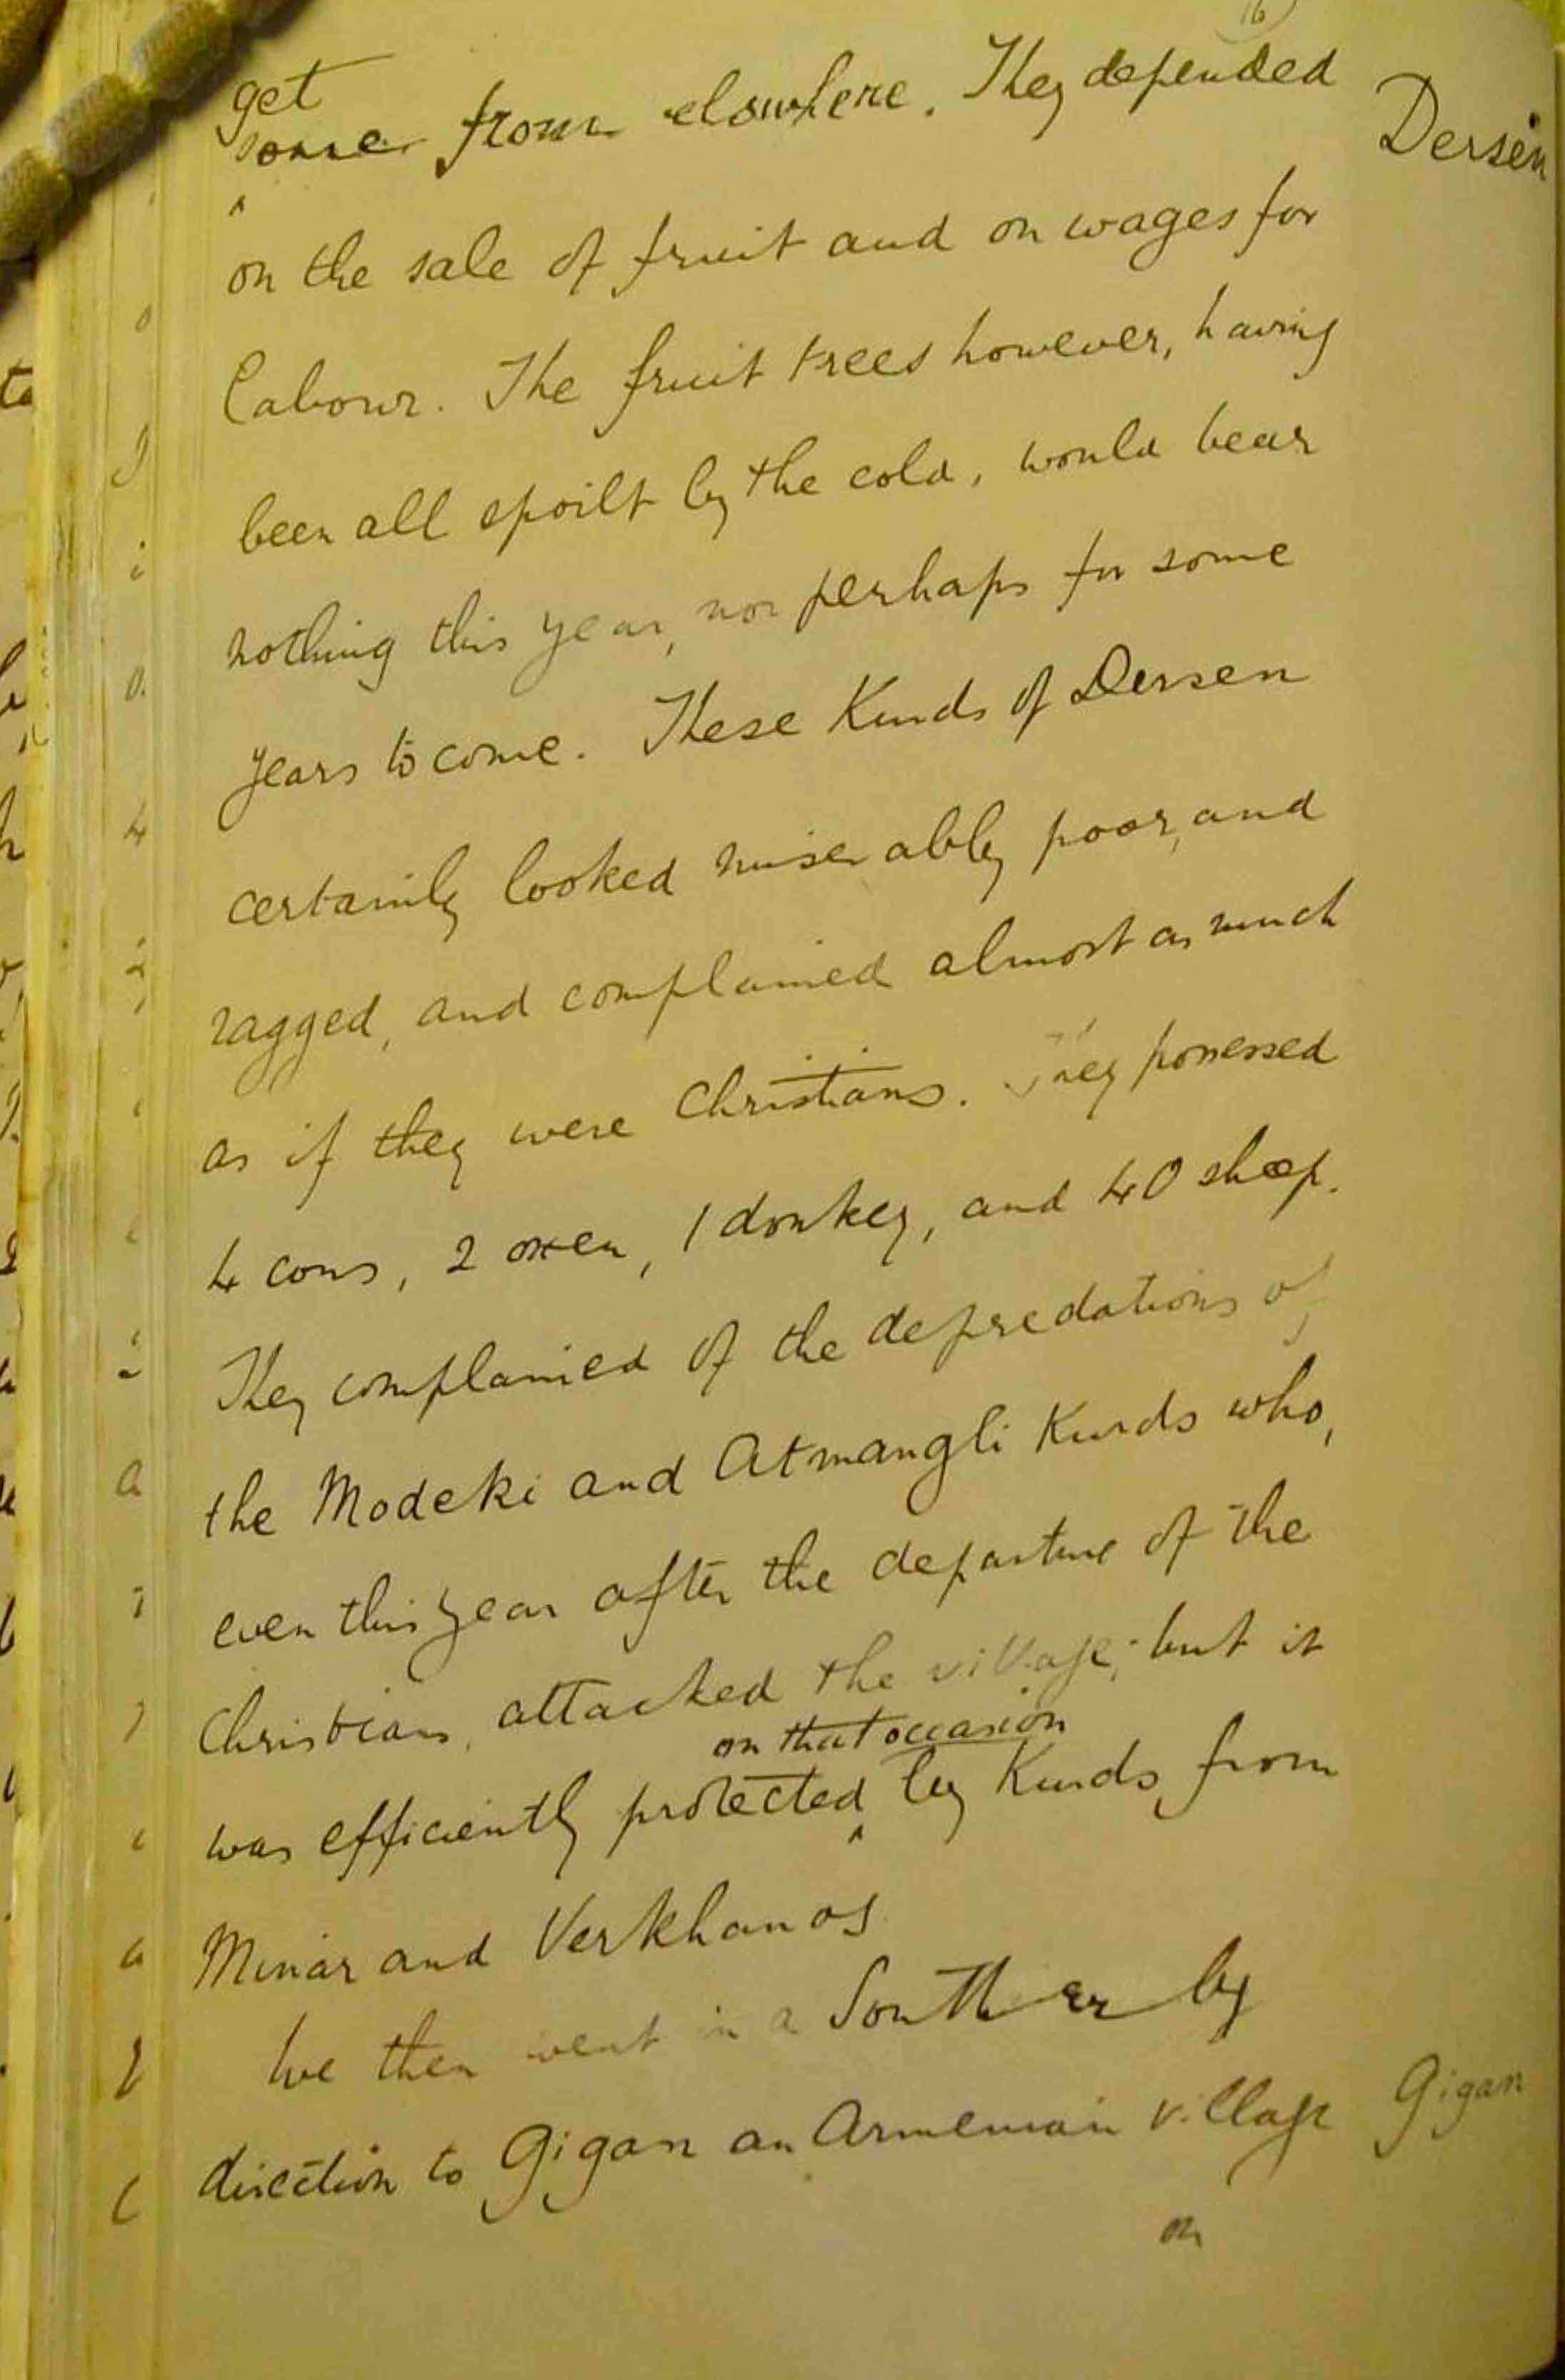 16)
get
some from elswhere. They depended
Dersen
on the sale of fruit and on wages for
labour. The fruit trees however, having
been all spoilt by the cold, would bear
nothing this year, nor perhaps for some
years to come. These Kurds of Dersen
certainly looked miserably poor, and
ragged, and complained almost as much
as if they were Christians. They possessed
4 cows, 2 oxen, 1 donkey, and 40 sheep.
They complained of the depredations of
the Modeki and Atmangli Kurds who,
even this year after the departure of the
Christians, attacked the village; but it
on that occasion
was efficiently protected by Kurds from
Minar and Verkhanos
We then went in a Southerly
direction to Gigan an Armenian village
Gigan
on